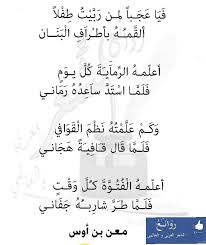 فَيَا عَجَبًا لمن رَبَّيْتُ طِفْلًا
أُلَقِّمُهُ بأطْرافِ الْبَنَانِ
أعلِّمهُ الرِّمايَةَ كُلَّ يومٍ
فَلَمَّا اسْتَدَّ ساعِدُهُ رَمَاني
وَكَمْ عَلَّمْتُهُ نَظْمَ الْقَوَافي
فَلَمَّا قَالَ قَافِيَةً هَجَاني
أعلِّمهُ الْفُتُوَّةَ كُلَّ وَقْتٍ
فَلَمَّا طَرَّ شارِبُهُ جَفَاني
معن بن أوس
روائع
الشعر العربي و العالمي